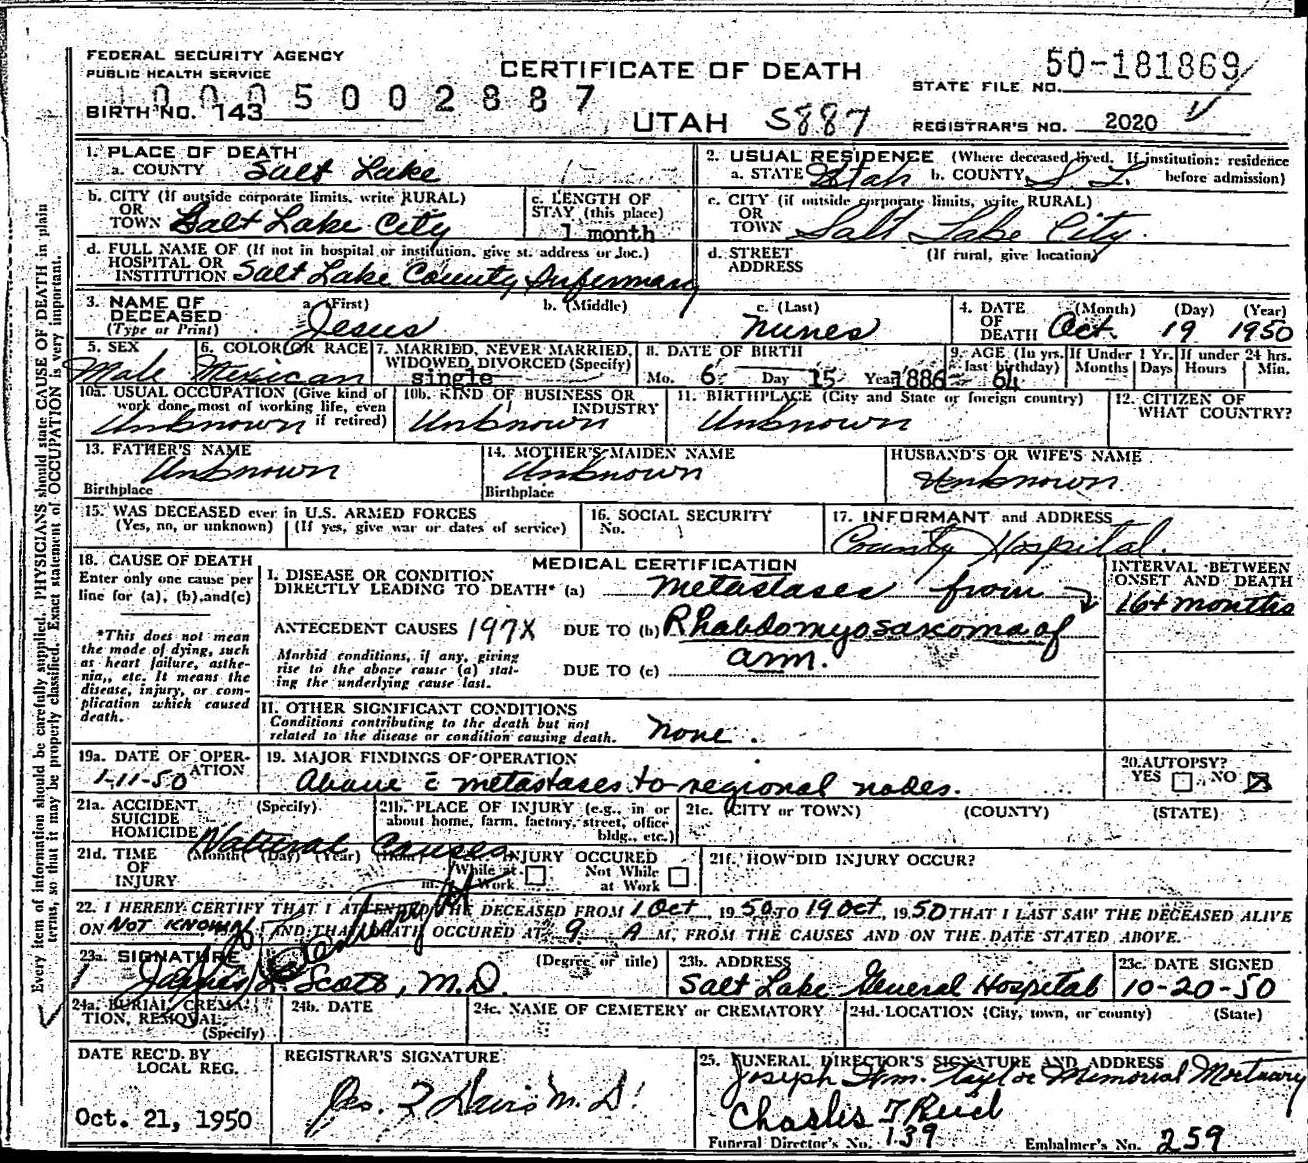 FEDERAL SECURITY AGENCY
PUBLIC HEALTH SERVICE
CERTIFICATE OF DEATH
50-181869
STATE FILE NO.
1 0 0 0 5 0 0 2 8 8 7
BIRTH NO. 143
UTAH S887
REGISTRAR'S NO. 2020
Every item of information should be carefully supplied. PHYSICIANS should state CAUSE OF DEATH in plain
terms, so that it may be properly classified. Exact statement of OCCUPATION is very important.
1. PLACE OF DEATH
a. COUNTY Salt Lake
2. USUAL RESIDENCE (Where deceased lived. If institution: residence
a. STATE Utah b. COUNTY S L. before admission)
b. CITY (If outside corporate limits, write RURAL)
OR
TOWN Salt Lake City
c. LENGTH OF
STAY (this place)
1 month
c. CITY (if outside corporate limits, write RURAL)
OR
TOWN Salt Lake City.
d. FULL NAME OF (If not in hospital or institution, give st. address or loc.)
HOSPITAL OR
INSTITUTION Salt Lake County Infermary
d. STREET (If rural, give location)
ADDRESS
3. NAME OF
DECEASED
(Type or Print)
a. (First) b. (Middle) c. (Last)
Jesus Nunes
4. DATE (Month) (Day) (Year)
OF
DEATH Oct. 19 1950
5. SEX
Male
6. COLOR OR RACE
Mexican
7. MARRIED, NEVER MARRIED,
WIDOWED, DIVORCED (Specify)
single
8. DATE OF BIRTH
Mo. 6 Day 15 Year 1886
9. AGE (In yrs.
last birthday)
64
If Under 1 Yr.
Months Days
If under 24 hrs.
Hours Min.
10a. USUAL OCCUPATION (Give kind of
work done most of working life, even
if retired)
Unknown
10b. KIND OF BUSINESS OR
INDUSTRY
Unknown
11. BIRTHPLACE (City and State or foreign country)
Unknown
12. CITIZEN OF
WHAT COUNTRY?
13. FATHER'S NAME
Unknown
Birthplace
14. MOTHER'S MAIDEN NAME
Unknown
Birthplace
HUSBAND'S OR WIFE'S NAME
Unknown
15. WAS DECEASED ever in U.S. ARMED FORCES
(Yes, no, or unknown) (If yes, give war or dates of service)
16. SOCIAL SECURITY
No.
17. INFORMANT and ADDRESS
County Hospital.
18. CAUSE OF DEATH
Enter only one cause per
line for (a), (b), and (c)
*This does not mean
the mode of dying, such
as heart failure, asthe-
nia,, etc. It means the
disease, injury, or com-
plication which caused
death.
MEDICAL CERTIFICATION
I. DISEASE OR CONDITION
DIRECTLY LEADING TO DEATH* (a) metastases from
ANTECEDENT CAUSES 197X DUE TO (b) Rhabdomyosarcoma of
arm.
Morbid conditions, if any, giving
rise to the above cause (a) stat-
ing the underlying cause last.
DUE TO (c)
INTERVAL BETWEEN
ONSET AND DEATH
16+ months
II. OTHER SIGNIFICANT CONDITIONS
Conditions contributing to the death but not
related to the disease or condition causing death.
None.
19a. DATE OF OPER-
ATION
1-11-50
19. MAJOR FINDINGS OF OPERATION
Above c̄ metastases to regional nodes.
20. AUTOPSY?
YES ☐ NO ☒
21a. ACCIDENT (Specify)
SUICIDE
HOMICIDE Natural Causes
21b. PLACE OF INJURY (e.g., in or
about home, farm, factory, street, office
bldg., etc.)
21c. (CITY or TOWN) (COUNTY) (STATE)
21d. TIME (Month) (Day) (Year) (Hour)
OF
INJURY m.
INJURY OCCURED
While at Work ☐ Not While at Work ☐
21f. HOW DID INJURY OCCUR?
22. I HEREBY CERTIFY THAT I ATTENDED THE DECEASED FROM 1 Oct, 1950 TO 19 Oct, 1950 THAT I LAST SAW THE DECEASED ALIVE
ON NOT KNOWN AND THAT DEATH OCCURED AT 9 A M, FROM THE CAUSES AND ON THE DATE STATED ABOVE.
23a. SIGNATURE (Degree or title)
James L. Scott, M.D.
23b. ADDRESS
Salt Lake General Hospital
23c. DATE SIGNED
10-20-50
24a. BURIAL, CREMA-
TION, REMOVAL
(Specify)
24b. DATE
24c. NAME OF CEMETERY or CREMATORY
24d. LOCATION (City, town, or county) (State)
DATE REC'D. BY
LOCAL REG.
Oct. 21, 1950
REGISTRAR'S SIGNATURE
Jas. F Davis M. D.
25. FUNERAL DIRECTOR'S SIGNATURE AND ADDRESS
Joseph Wm. Taylor Memorial Mortuary
Charles T Reid
Funeral Director's No. 139 Embalmer's No. 259